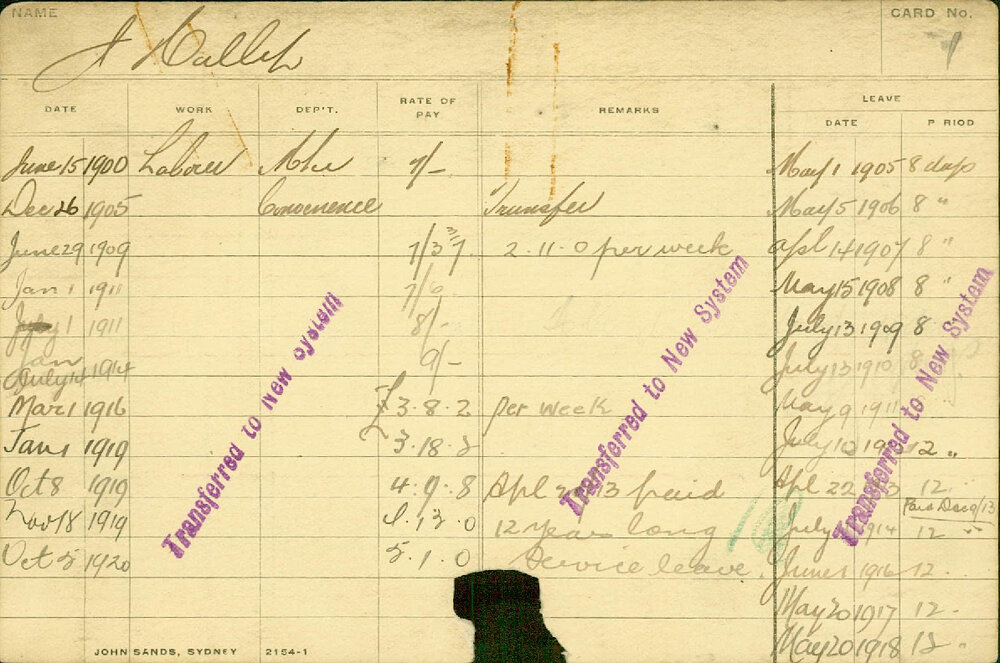 NAME
CARD No.
1
J
DATE WORK DEP'T. RATE OF PAY REMARKS LEAVE
DATE PERIOD
June 15 1900 Labourer 7/- May 1 1905 8 days
Dec 26 1905 Transfer May 5 1906 8 "
June 29 1909 7/3 2.11.0 per week Apl 14 1907 8 "
Jan 1 1911 7/6 May 15 1908 8 "
July 1 1911 8/- July 13 1909 8
Jan 9/- July 13 1910 8
July 14 1914
Mar 1 1916 £3.8.2 per week May 9 1911
Jan 1 1919 3.18.2 July 12 "
Oct 8 1919 4.9.8 Apl 13 paid Apl 22 12
Nov 18 1919 4.13.0 12 Years long July 1914 12 "
Oct 5 1920 5.1.0 Service leave. June 1 1916 12.
May 20 1917 12.
May 20 1918 12.
Transferred to New System
Transferred to New System
Transferred to New System
JOHN SANDS, SYDNEY 2154-1